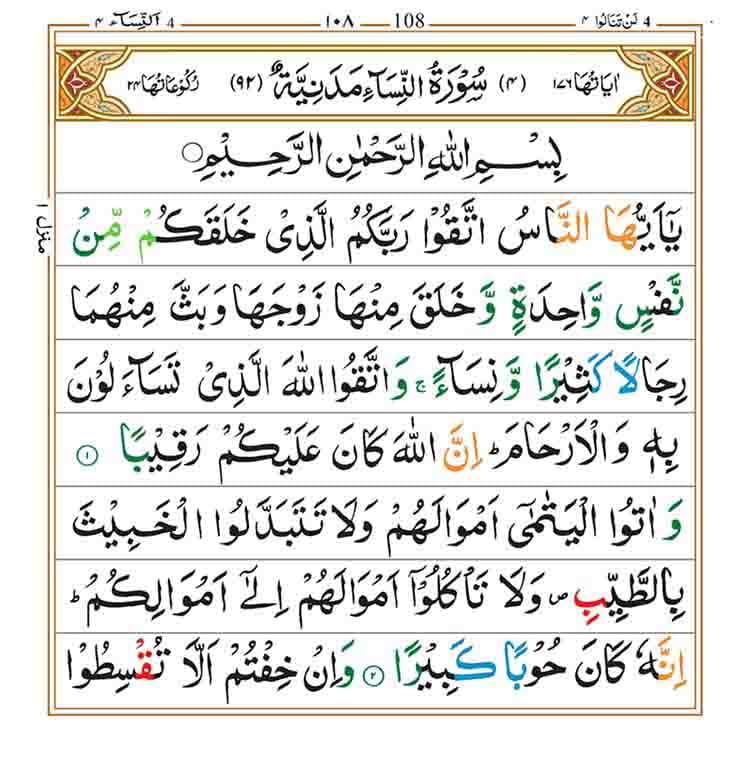 4 لَنْ تَنَالُوا ۴ 108 ١٠٨ 4 اَلنِّسَآء ۴
اٰیَاتُهَا ١٧٦ (۴) سُوْرَةُ النِّسَآءِ مَدَنِیَّةٌ (٩٢) رُكُوْعَاتُهَا ٢۴
بِسْمِ اللّٰهِ الرَّحْمٰنِ الرَّحِیْمِ ۝
یٰۤاَیُّهَا النَّاسُ اتَّقُوْا رَبَّكُمُ الَّذِیْ خَلَقَكُمْ مِّنْ
نَّفْسٍ وَّاحِدَةٍ وَّ خَلَقَ مِنْهَا زَوْجَهَا وَ بَثَّ مِنْهُمَا
رِجَالًا كَثِیْرًا وَّ نِسَآءً ۚ وَ اتَّقُوا اللّٰهَ الَّذِیْ تَسَآءَلُوْنَ
بِهٖ وَ الْاَرْحَامَ ؕ اِنَّ اللّٰهَ كَانَ عَلَیْكُمْ رَقِیْبًا ١
وَ اٰتُوا الْیَتٰمٰۤی اَمْوَالَهُمْ وَلَا تَتَبَدَّلُوا الْخَبِیْثَ
بِالطَّیِّبِ ۪ وَلَا تَاْكُلُوْۤا اَمْوَالَهُمْ اِلٰۤی اَمْوَالِكُمْ ؕ
اِنَّهٗ كَانَ حُوْبًا كَبِیْرًا ٢ وَ اِنْ خِفْتُمْ اَلَّا تُقْسِطُوْا
منزل ١